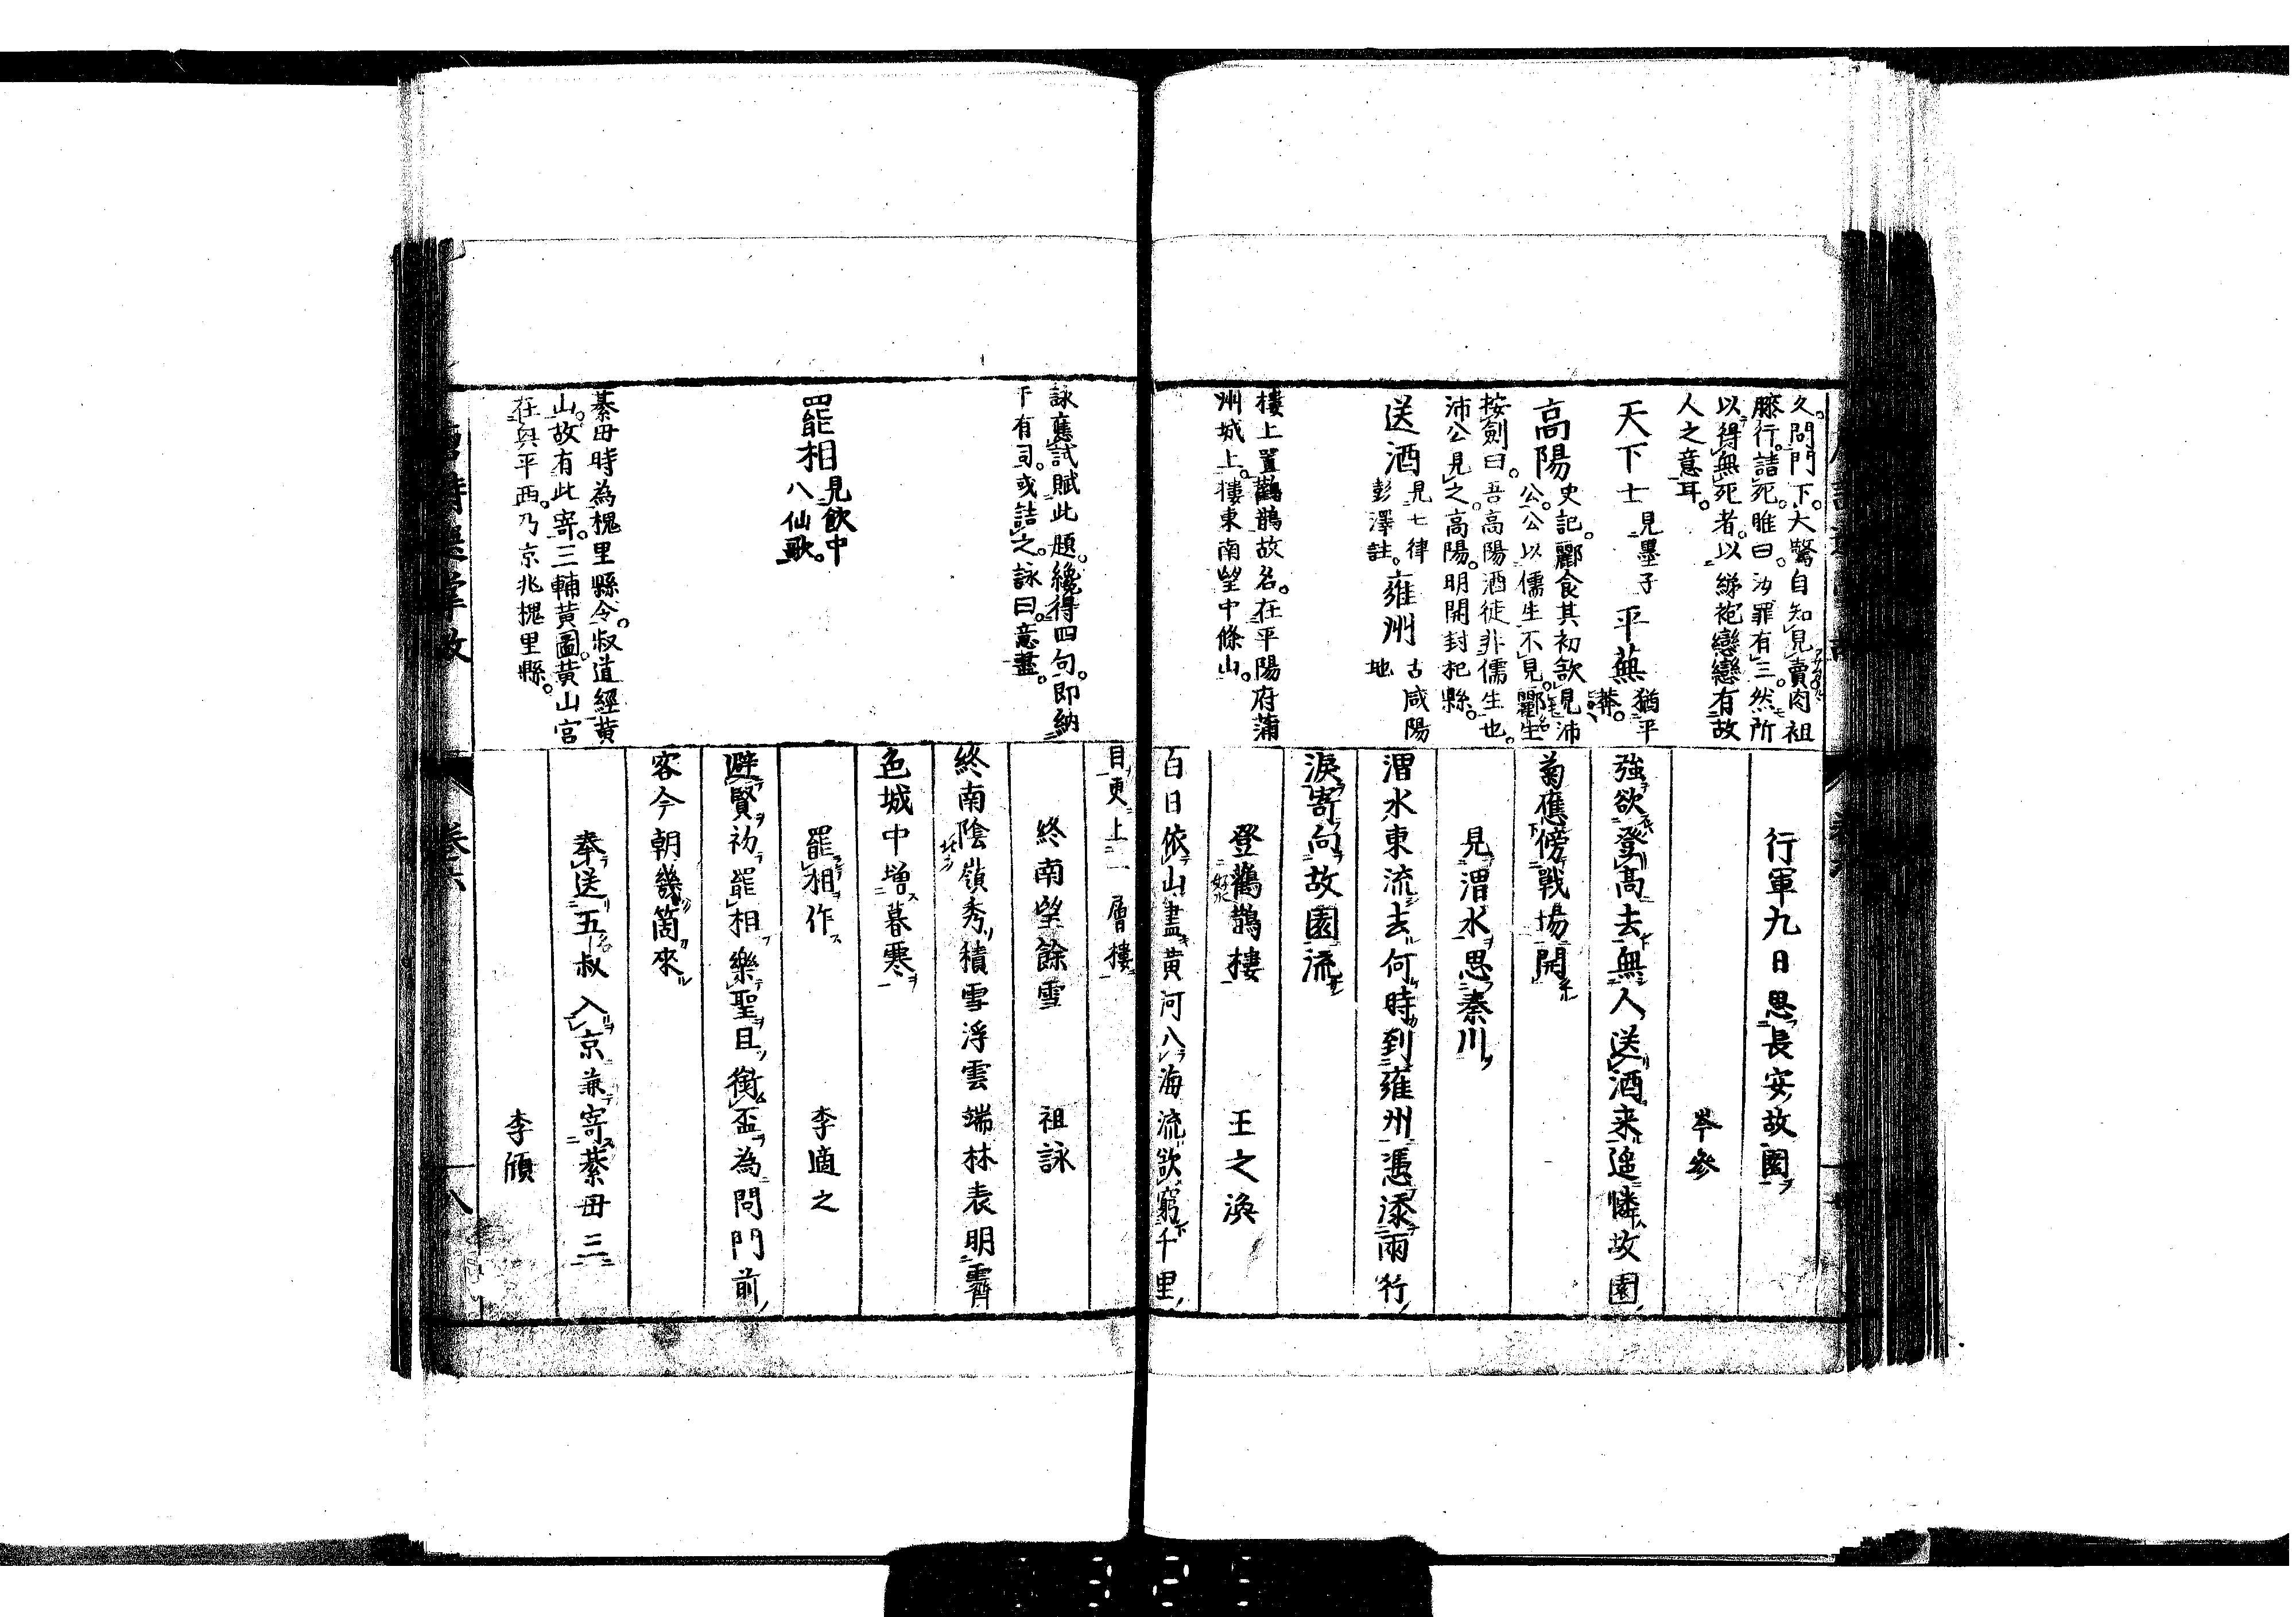 久。問門下。大驚自知見賣肉袒
膝行。詰死。睢曰。汝罪有三。然所
以得無死者。以綈袍戀戀有故
人之意耳。
天下士 見墨子 平蕪 猶平莽。
高陽 史記。酈食其初欲見沛
公。公以儒生不見。酈生
按劍曰。吾高陽酒徒非儒生也。
沛公見之。高陽。明開封杞縣。
送酒 見七律彭澤註。 雍州 古咸陽地
樓上置鸛鵲故名。在平陽府蒲
州城上。樓東南望中條山。
行軍九日思長安故園
岑參
強欲登高去無人送酒来遙憐故園
菊應傍戰場開
見渭水思秦川
渭水東流去何時到雍州憑添兩行
淚寄向故園流
登鸛鵲樓 王之渙
白日依山盡黄河入海流欲窮千里
詠應試賦此題。纔得四句。即納
于有司。或詰之。詠曰。意盡。
罷相 見飲中八仙歌。
綦毋時為槐里縣令。叔道經黄
山。故有此寄。三輔黄圖。黄山宮
在興平西。乃京兆槐里縣。
目更上一層樓
終南望餘雪 祖詠
終南陰嶺秀積雪浮雲端林表明霽
色城中增暮寒
罷相作 李適之
避賢初罷相樂聖且銜盃為問門前
客今朝幾箇來
奉送五叔入京兼寄綦毋三
李頎
唐詩選掌故
卷六
八